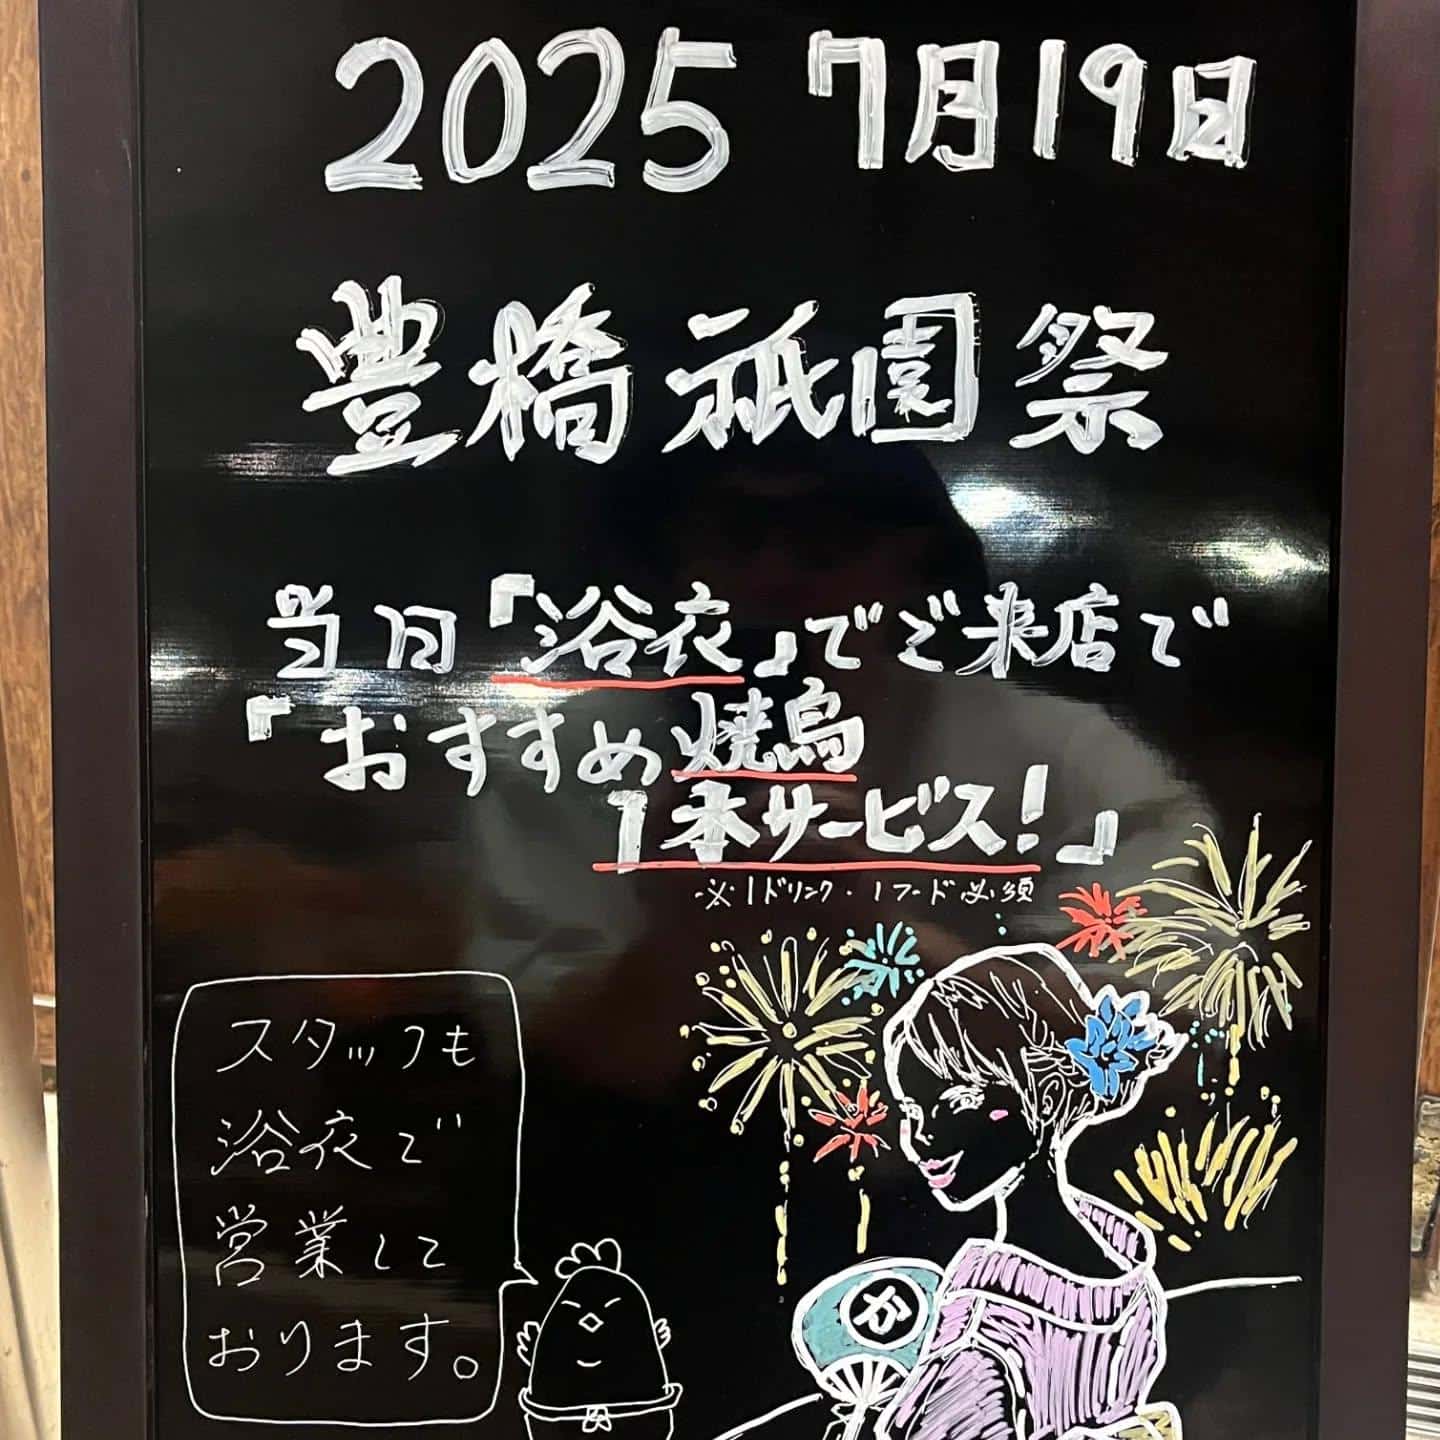 2025 7月19日
豊橋祇園祭
当日「浴衣」でご来店で
「おすすめ焼鳥
1本サービス!」
※1ドリンク・1フード必須
スタッフも
浴衣で
営業して
おります。
か